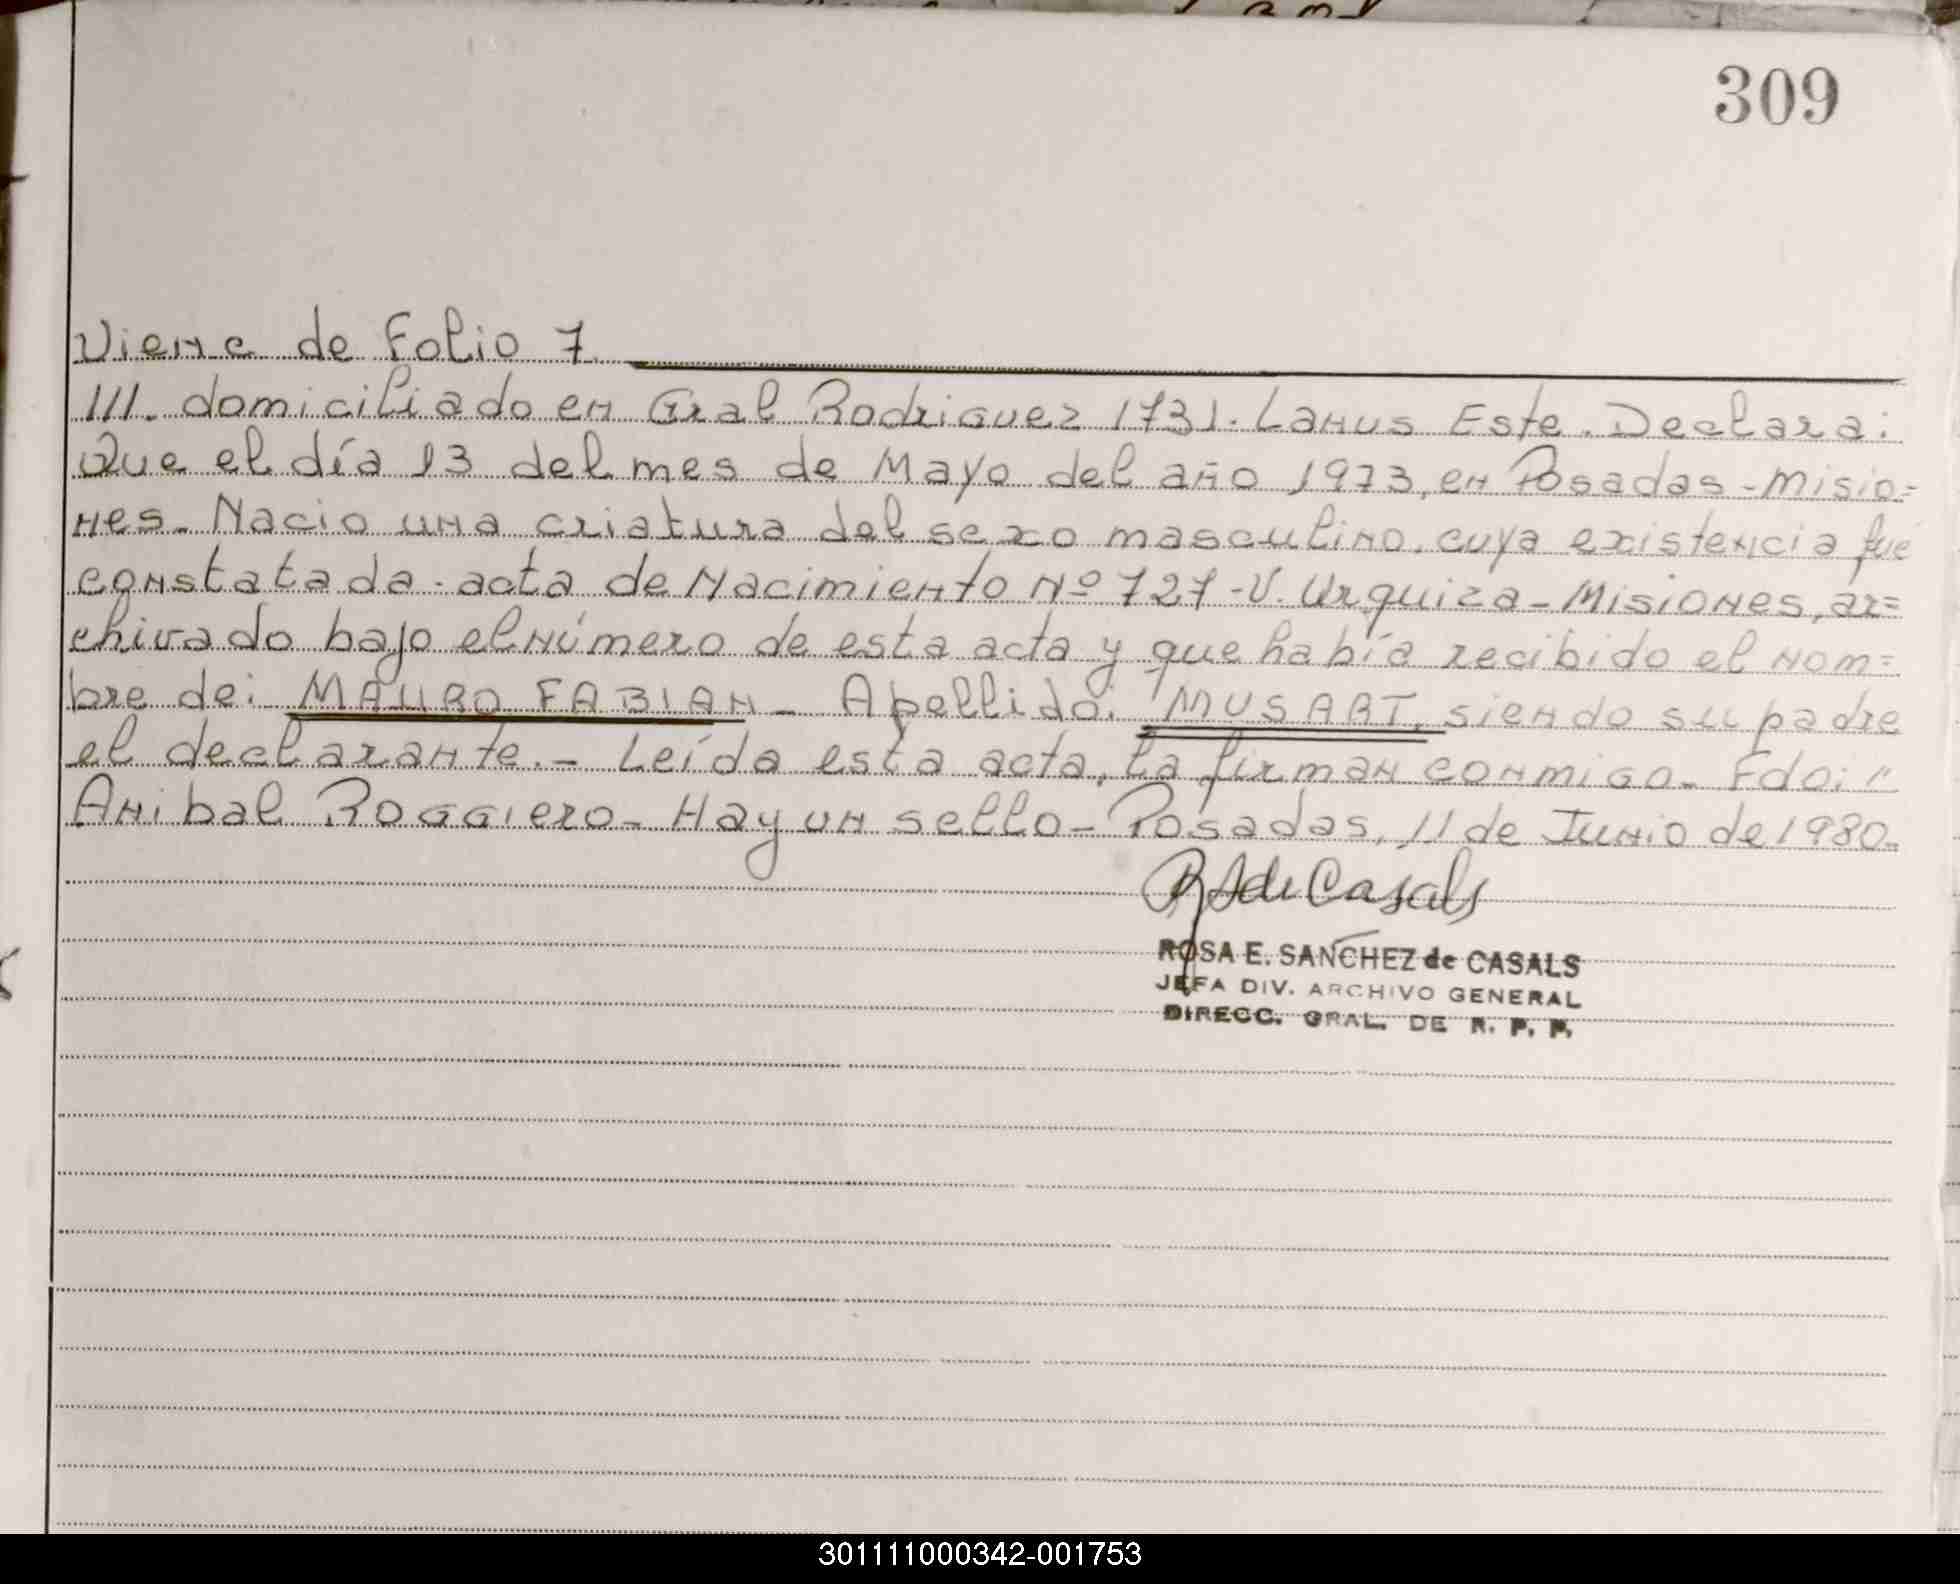 309
Viene de Folio 7
III. domiciliado en Gral Rodriguez 1731. Lanus Este. Declara:
Que el día 13 del mes de Mayo del año 1973, en Posadas - Misio=
nes. Nacio una criatura del sexo masculino, cuya existencia fue
constatada - acta de Nacimiento Nº 727 - V. Urquiza - Misiones, ar=
chivado bajo el número de esta acta y que había recibido el nom=
bre de: MAURO FABIAN - Apellido: MUSART, siendo su padre
el declarante. - Leída esta acta, la firman conmigo - Fdo: "
Anibal Roggiero - Hay un sello - Posadas, 11 de Junio de 1980 -
RSde Casals
ROSA E. SANCHEZ de CASALS
JEFA DIV. ARCHIVO GENERAL
DIRECC. GRAL. DE R. P. P.
301111000342-001753